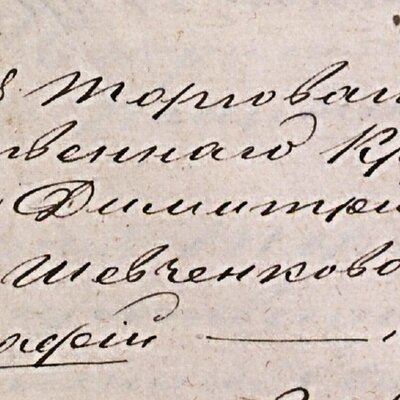 в Торговал
твеннаго Кр
Димитрі
Шевченково
рафій